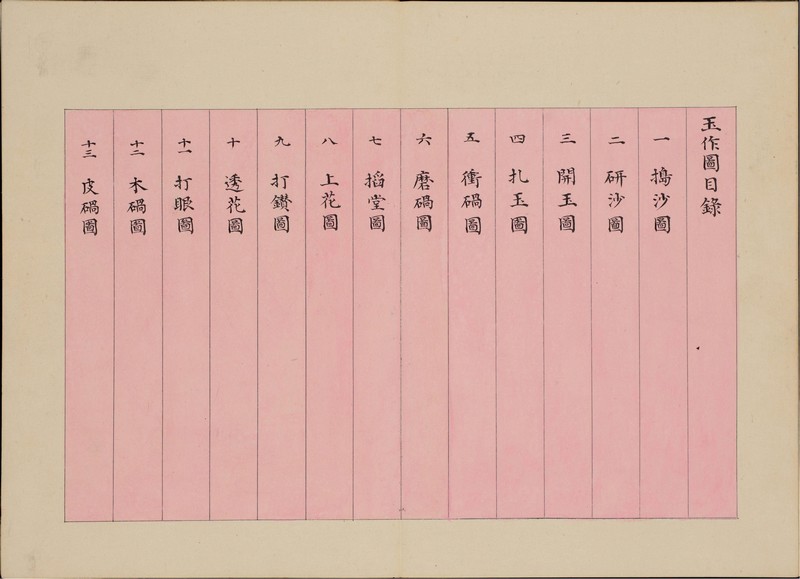 玉作圖目錄
一 搗沙圖
二 研沙圖
三 開玉圖
四 扎玉圖
五 衝碢圖
六 磨碢圖
七 搯堂圖
八 上花圖
九 打鑽圖
十 透花圖
十一 打眼圖
十二 木碢圖
十三 皮碢圖